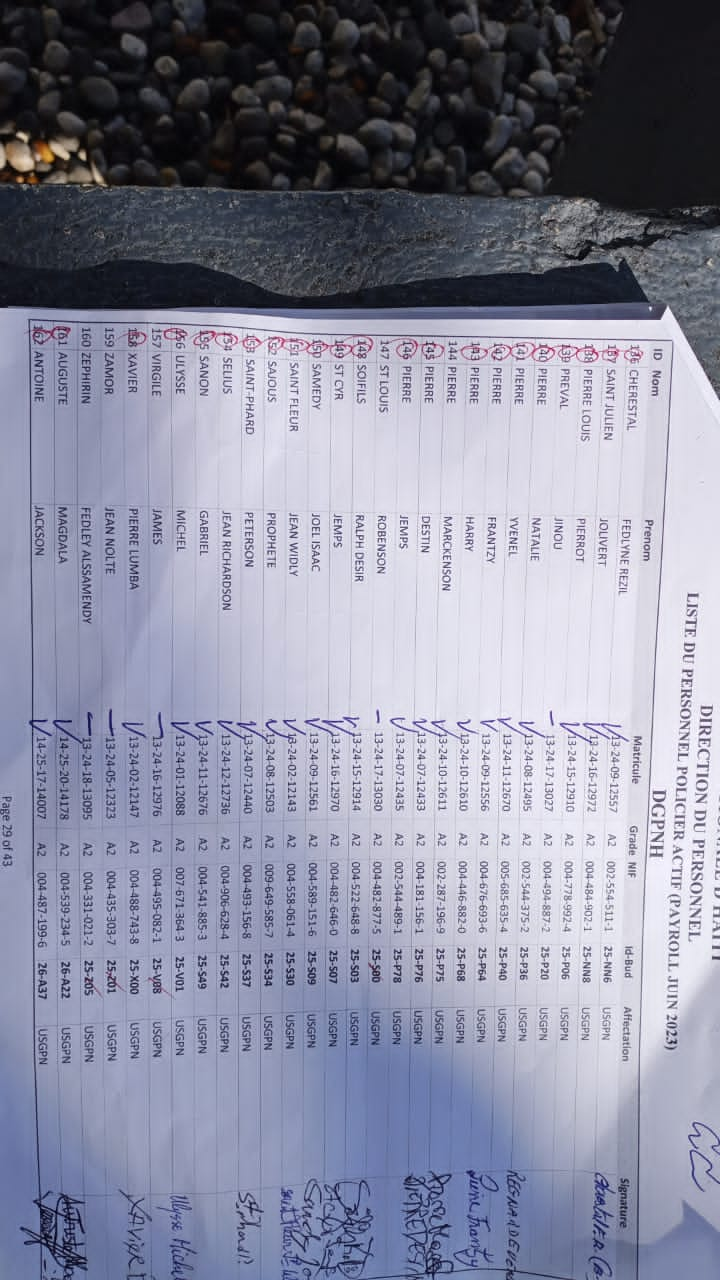 DIRECTION DU PERSONNEL
LISTE DU PERSONNEL POLICIER ACTIF (PAYROLL JUIN 2023)
DGPNH
ID Nom Prenom Matricule Grade NIF Id-Bud Affectation Signature
136 CHERESTAL FEDLYNE REZIL 13-24-09-12557 A2 002-554-511-1 25-NN6 USGPN
137 SAINT JULIEN JOLIVERT 13-24-16-12972 A2 004-484-902-1 25-NN8 USGPN
138 PIERRE LOUIS PIERROT 13-24-15-12910 A2 004-778-992-4 25-P06 USGPN
139 PREVAL JINOU 13-24-17-13027 A2 004-494-887-2 25-P20 USGPN
140 PIERRE NATALIE 13-24-08-12495 A2 002-544-375-2 25-P36 USGPN
141 PIERRE YVENEL 13-24-11-12670 A2 005-685-635-4 25-P40 USGPN
142 PIERRE FRANTZY 13-24-09-12556 A2 004-676-693-6 25-P64 USGPN
143 PIERRE HARRY 13-24-10-12610 A2 004-446-882-0 25-P68 USGPN
144 PIERRE MARCKENSON 13-24-10-12611 A2 002-287-196-9 25-P75 USGPN
145 PIERRE DESTIN 13-24-07-12433 A2 004-181-156-1 25-P76 USGPN
146 PIERRE JEMPS 13-24-07-12435 A2 002-544-489-1 25-P78 USGPN
147 ST LOUIS ROBENSON 13-24-17-13030 A2 004-482-877-5 25-S00 USGPN
148 SOIFILS RALPH DESIR 13-24-15-12914 A2 004-522-648-8 25-S03 USGPN
149 ST CYR JEMPS 13-24-16-12970 A2 004-482-646-0 25-S07 USGPN
150 SAMEDY JOEL ISAAC 13-24-09-12561 A2 004-589-151-6 25-S09 USGPN
151 SAINT FLEUR JEAN WIDLY 13-24-02-12143 A2 004-558-061-4 25-S30 USGPN
152 SAJOUS PROPHETE 13-24-08-12503 A2 009-649-585-7 25-S34 USGPN
153 SAINT-PHARD PETERSON 13-24-07-12440 A2 004-493-156-8 25-S37 USGPN
154 SELIUS JEAN RICHARDSON 13-24-12-12736 A2 004-906-628-4 25-S42 USGPN
155 SANON GABRIEL 13-24-11-12676 A2 004-541-885-3 25-S49 USGPN
156 ULYSSE MICHEL 13-24-01-12088 A2 007-671-364-3 25-V01 USGPN
157 VIRGILE JAMES 13-24-16-12976 A2 004-495-082-1 25-V08 USGPN
158 XAVIER PIERRE LUMBA 13-24-02-12147 A2 004-488-743-8 25-X00 USGPN
159 ZAMOR JEAN NOLTE 13-24-05-12323 A2 004-435-303-7 25-Z01 USGPN
160 ZEPHRIN FEDLEY ALSSAMENDY 13-24-18-13095 A2 004-331-021-2 25-Z05 USGPN
161 AUGUSTE MAGDALA 14-25-20-14178 A2 004-539-234-5 26-A22 USGPN
162 ANTOINE JACKSON 14-25-17-14007 A2 004-487-199-6 26-A37 USGPN
Page 29 of 43